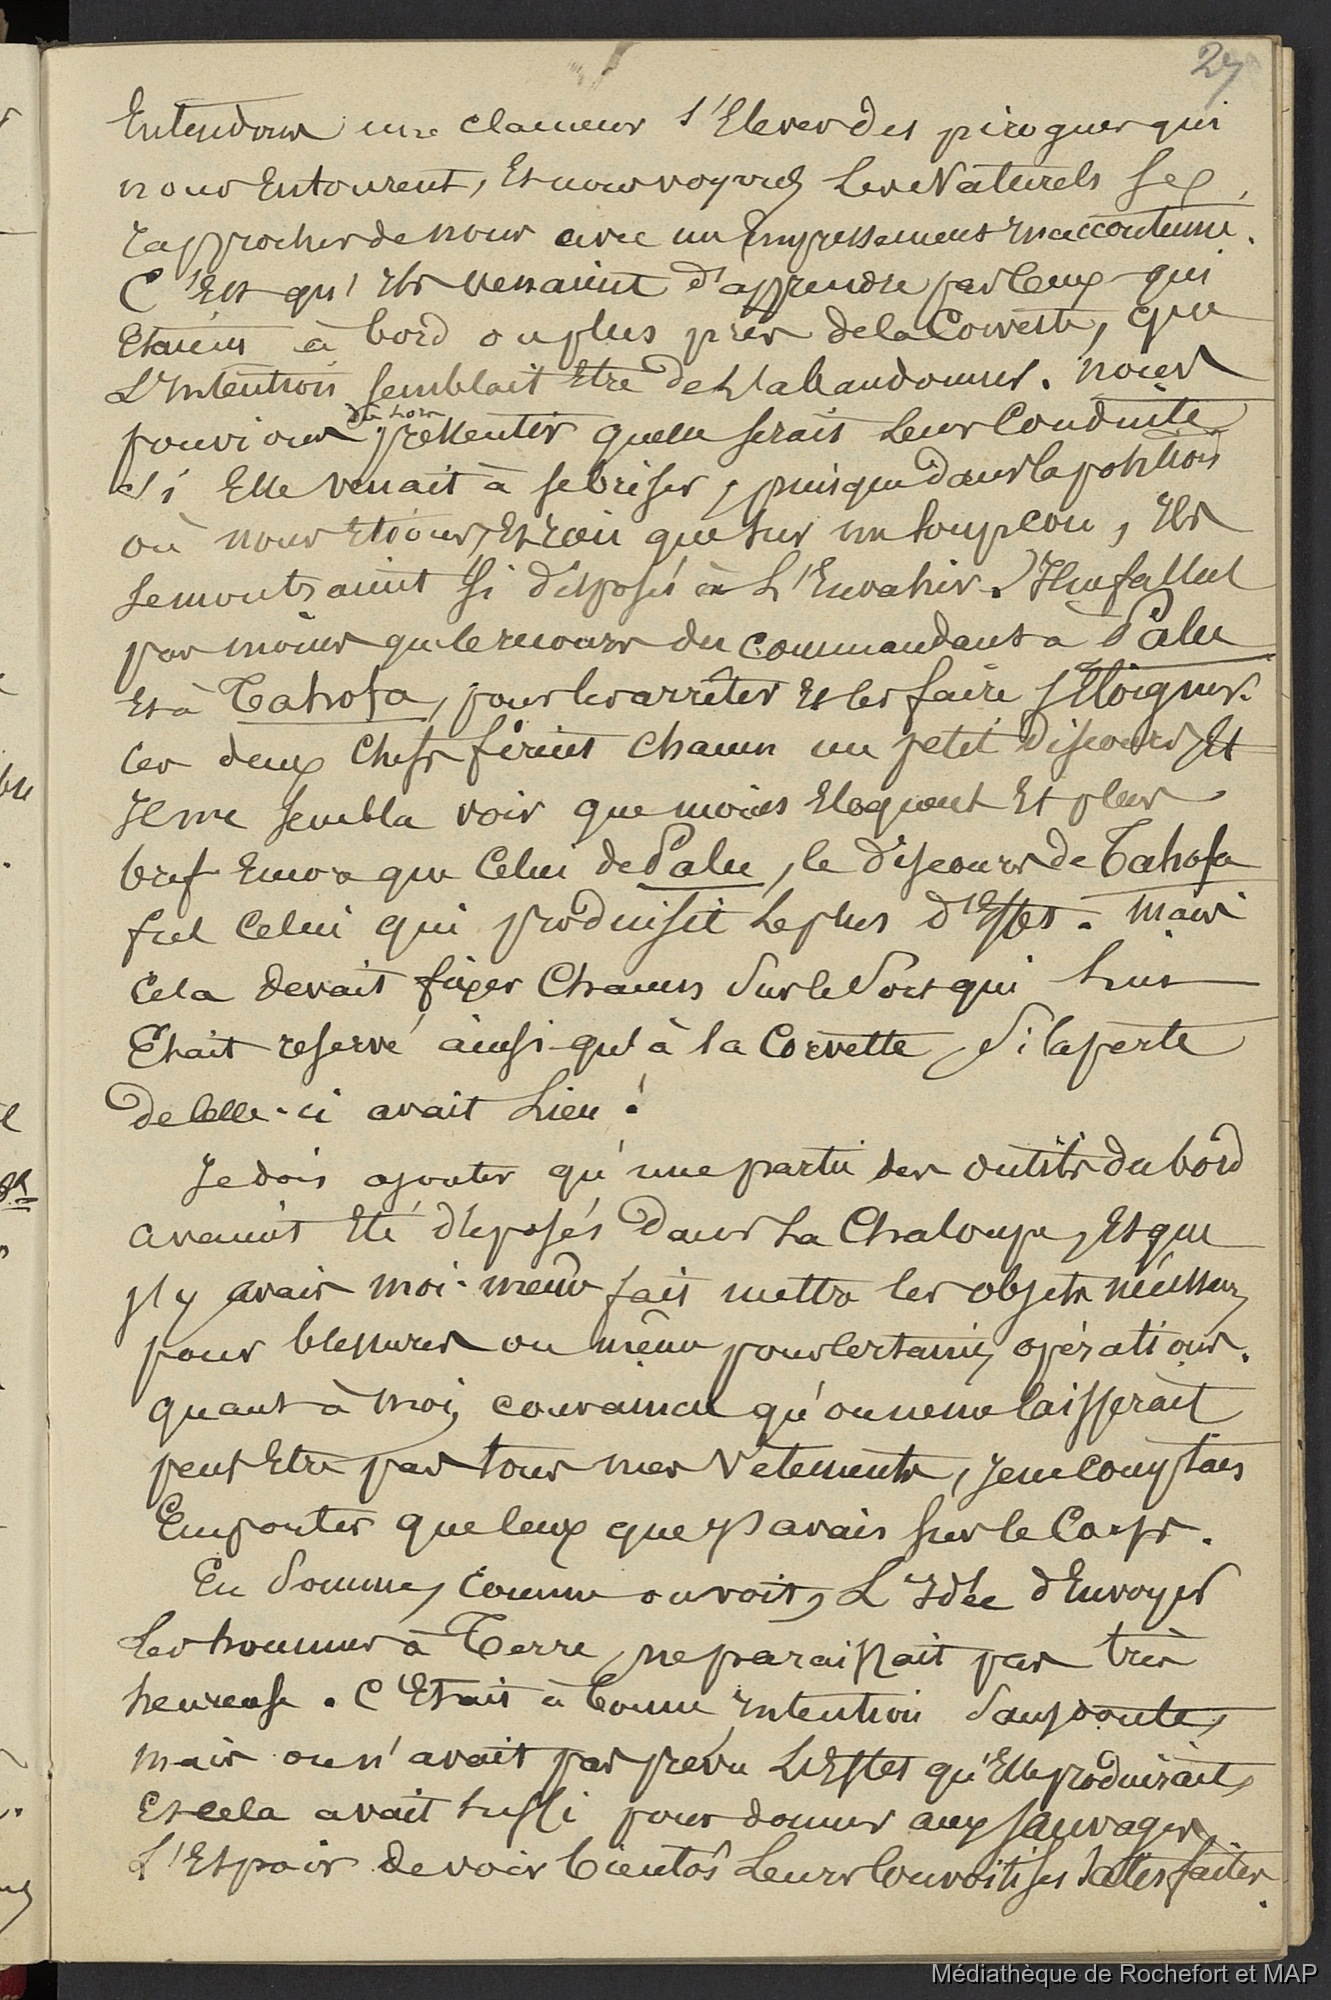 27
Entendons une clameur s'Elever des pirogues qui
nous Entourent, Et nous voyons Les Naturels se
rapprocher de nous avec un Empressement Inaccoutumé.
C'Est qu'Ils venaient d'apprendre par Ceux qui
Etaient à bord ou plus près de la Corvette, que
L'Intention semblait Etre de L'abandonner. nous
pouvions dès lors pressentir quelle serait Leur Conduite
si Elle venait à se briser, puisque dans la position
où nous Etions, Et rien que sur un soupçon, Ils
se montraient si disposés à L'Envahir. Il ne fallut
pas moins que le recours du commandant à Palu
Et à Tahofa, pour les arrêter Et les faire s'Eloigner.
Ces deux Chefs firent chacun un petit Discours Et
Il me sembla voir que moins Eloquent Et plus
bref Encore que Celui de Palu, le Discours de Tahofa
fut Celui qui produisit Le plus d'Effet. Mais
Cela devait fixer Chacun Sur le Sort qui Lui
Etait reservé ainsi qu'à la Corvette, Si la perte
de Celle-ci avait Lieu!
Je dois ajouter qu'une partie des outils du bord
avaient Eté déposés Dans La Chaloupe, Et que
j'y avais moi-même fait mettre les objets nécessaires
pour blessures ou même pour Certaines opérations.
quant à moi, convaincu qu'on ne me laisserait
peut Etre pas tous mes Vetements, je ne Comptais
Emporter que Ceux que j'avais sur le Corps.
En Somme, Comme on voit, L'Idée d'Envoyer
Les hommes à Terre, ne paraissait pas très
heureuse. C'Etait à bonne Intention Sans doute,
mais on n'avait pas prévu L'Effet qu'Elle produirait,
Et cela avait suffi pour donner aux Sauvages,
L'Espoir de voir bientôt Leurs Convoitises satisfaites.
Médiathèque de Rochefort et MAP